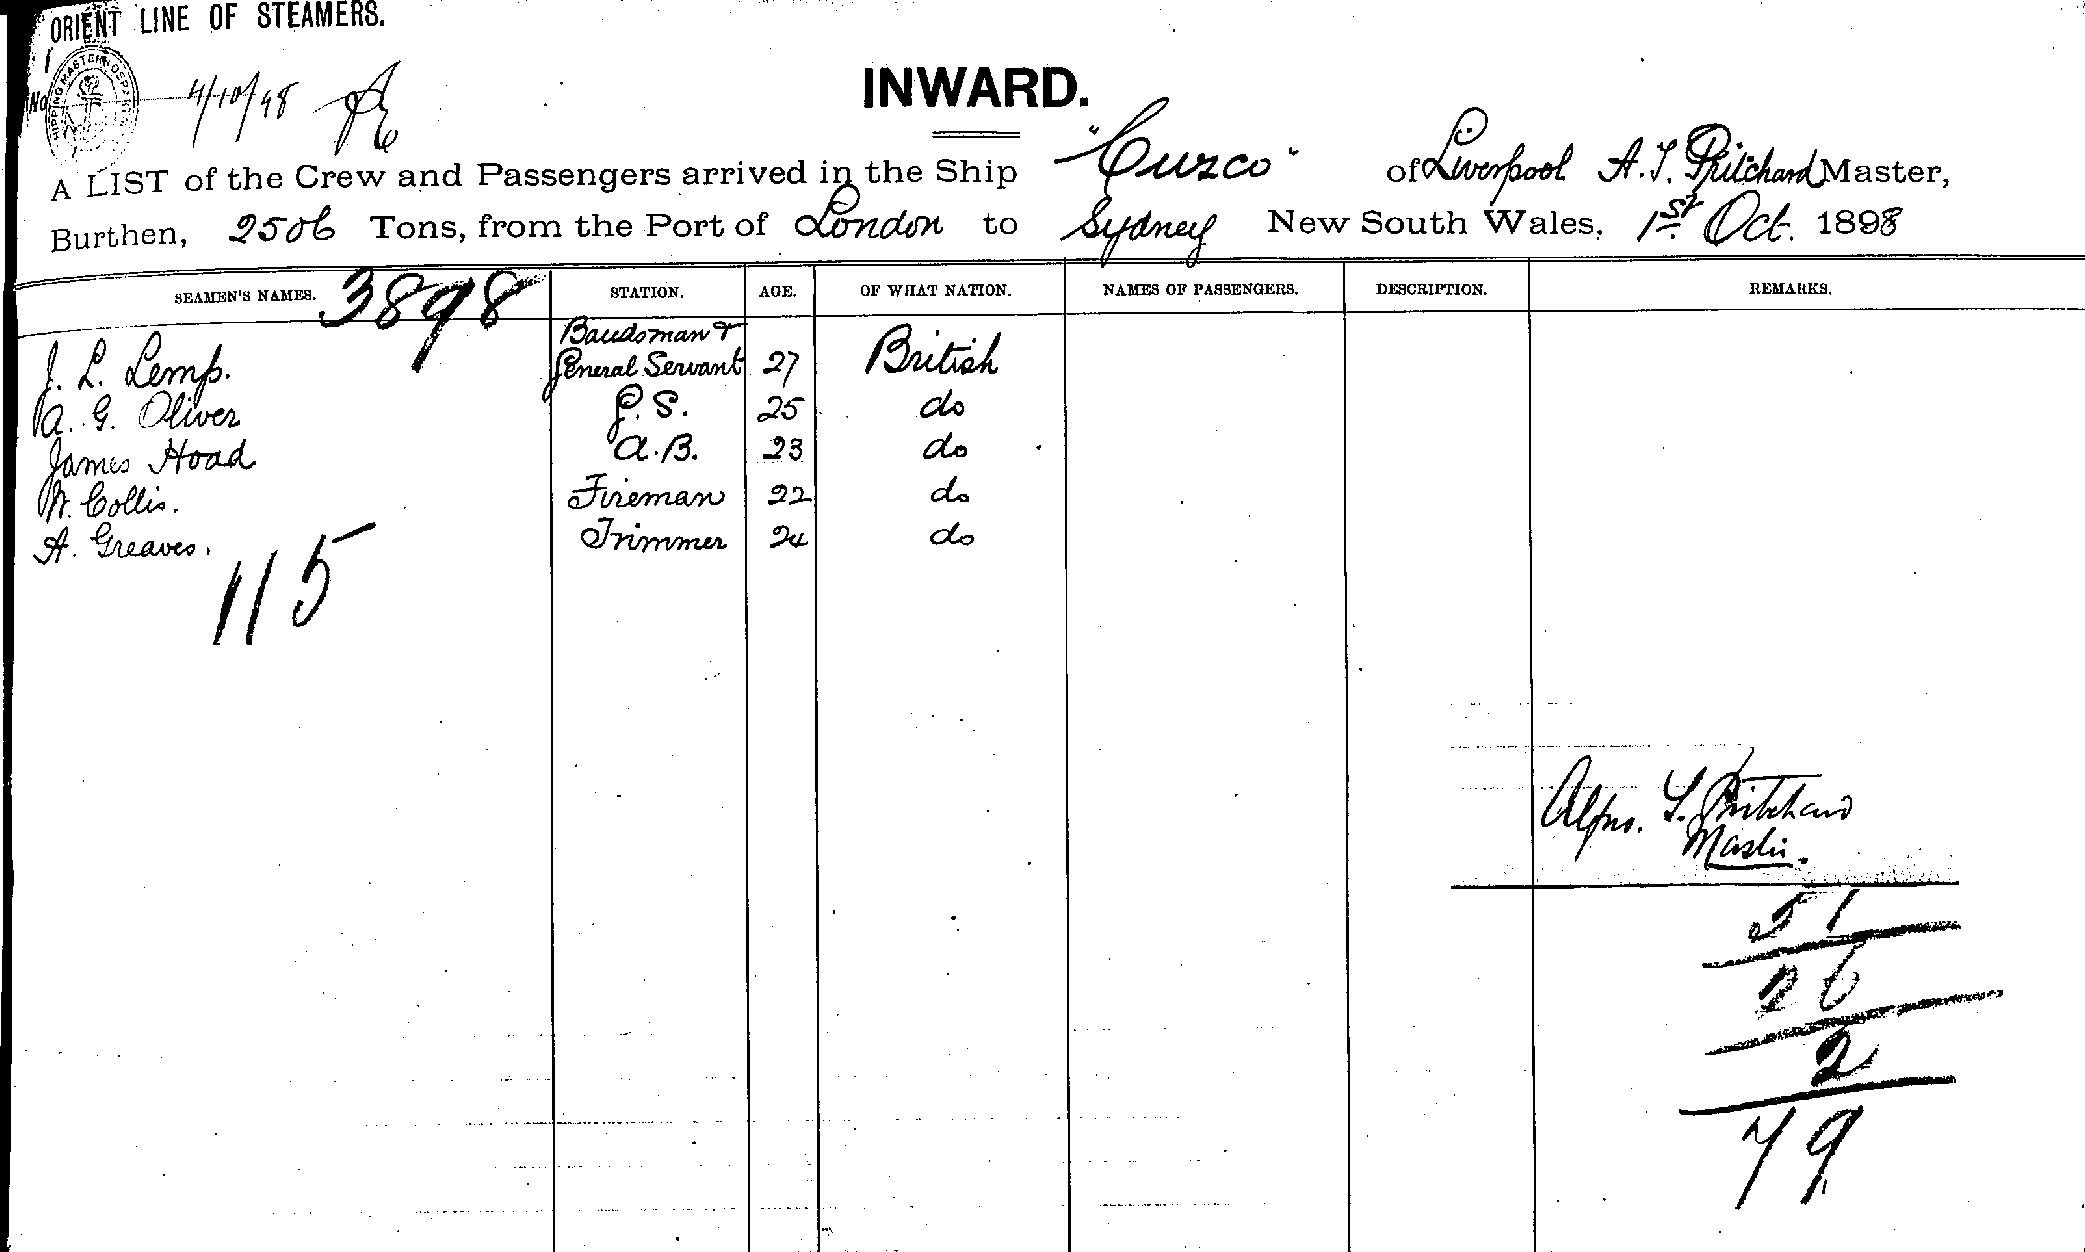 ORIENT LINE OF STEAMERS.
No
4/10/98
INWARD.
A LIST of the Crew and Passengers arrived in the Ship "Cuzco" of Liverpool A. T. Pritchard Master,
Burthen, 2506 Tons, from the Port of London to Sydney New South Wales, 1st Oct. 1898
SEAMEN'S NAMES. 3898 STATION. AGE. OF WHAT NATION. NAMES OF PASSENGERS. DESCRIPTION. REMARKS.
J. L. Lemp. Bandsman & General Servant 27 British
A. G. Oliver G. S. 25 do
James Hoad A. B. 23 do
W. Collis. Fireman 22 do
A. Greaves. Trimmer 24 do
115
T. Pritchard
Master.
51
26
2
79